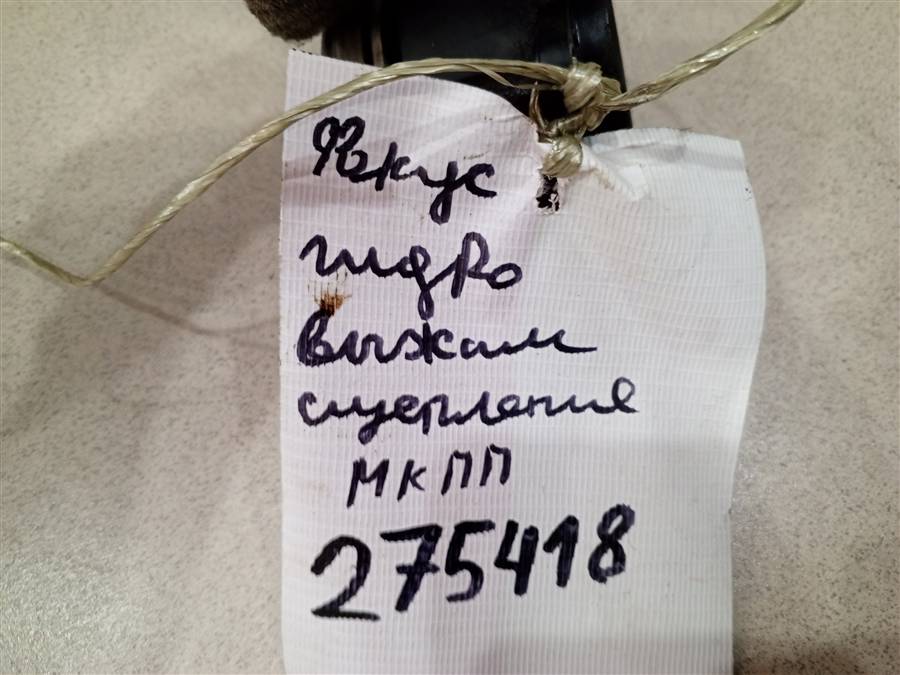 Фкус
гидро
выжим
сцепления
мкПП
275418